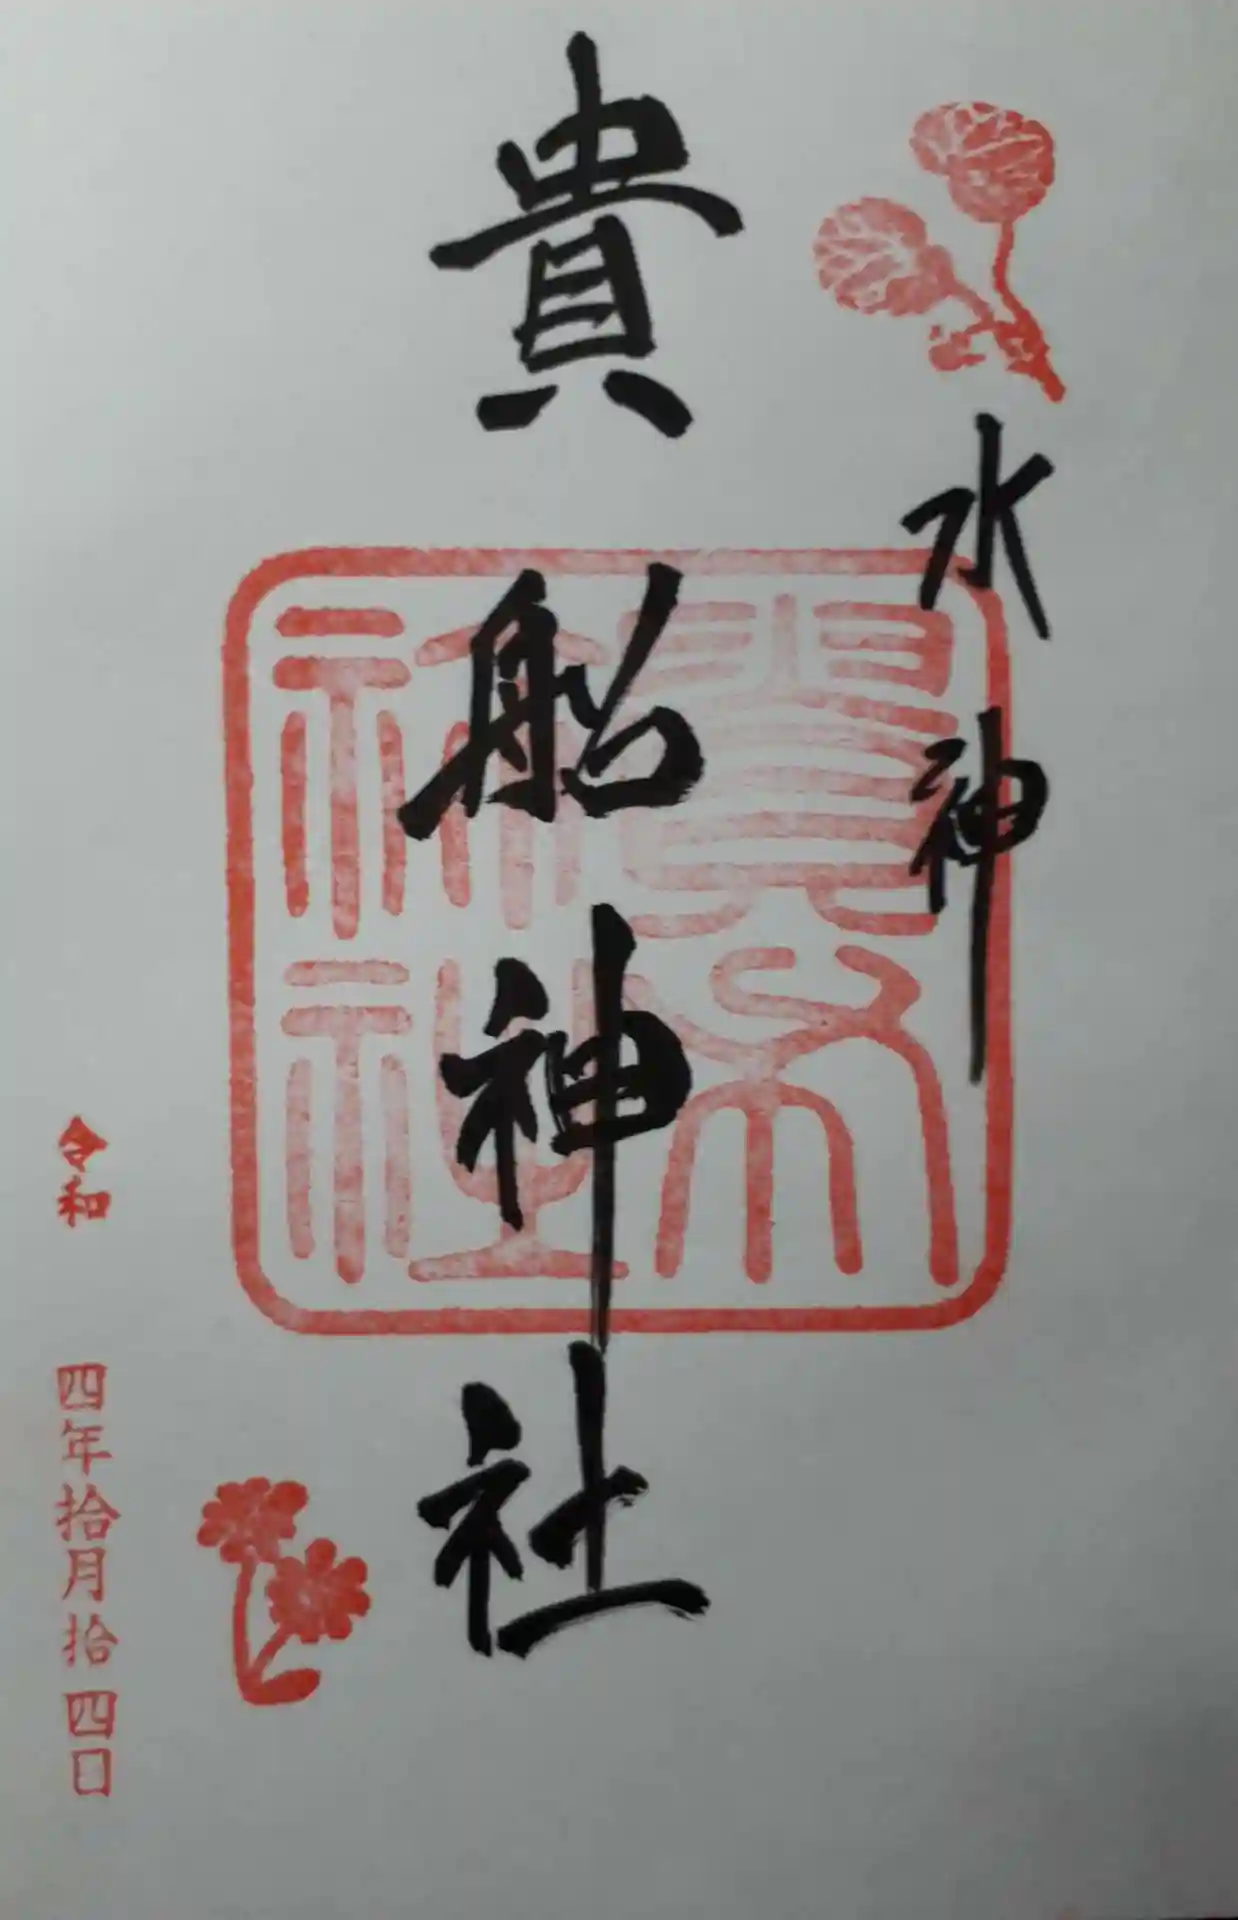 水神
貴船神社
貴布祢神社
令和 四年拾月拾四日